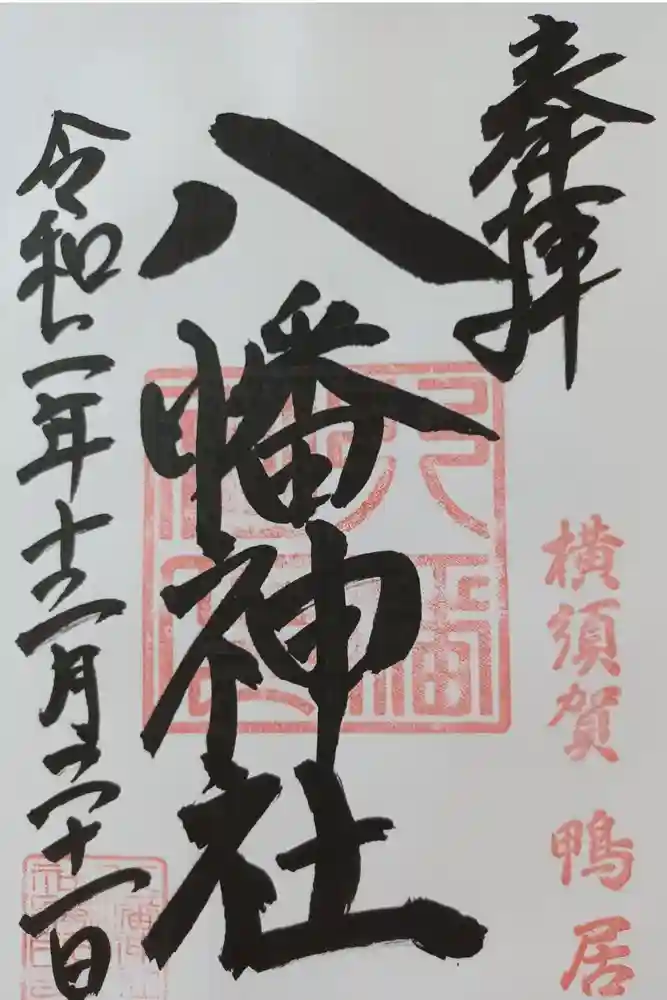 奉拝
横須賀 鴨居
八幡神社
令和二年十二月二十一日